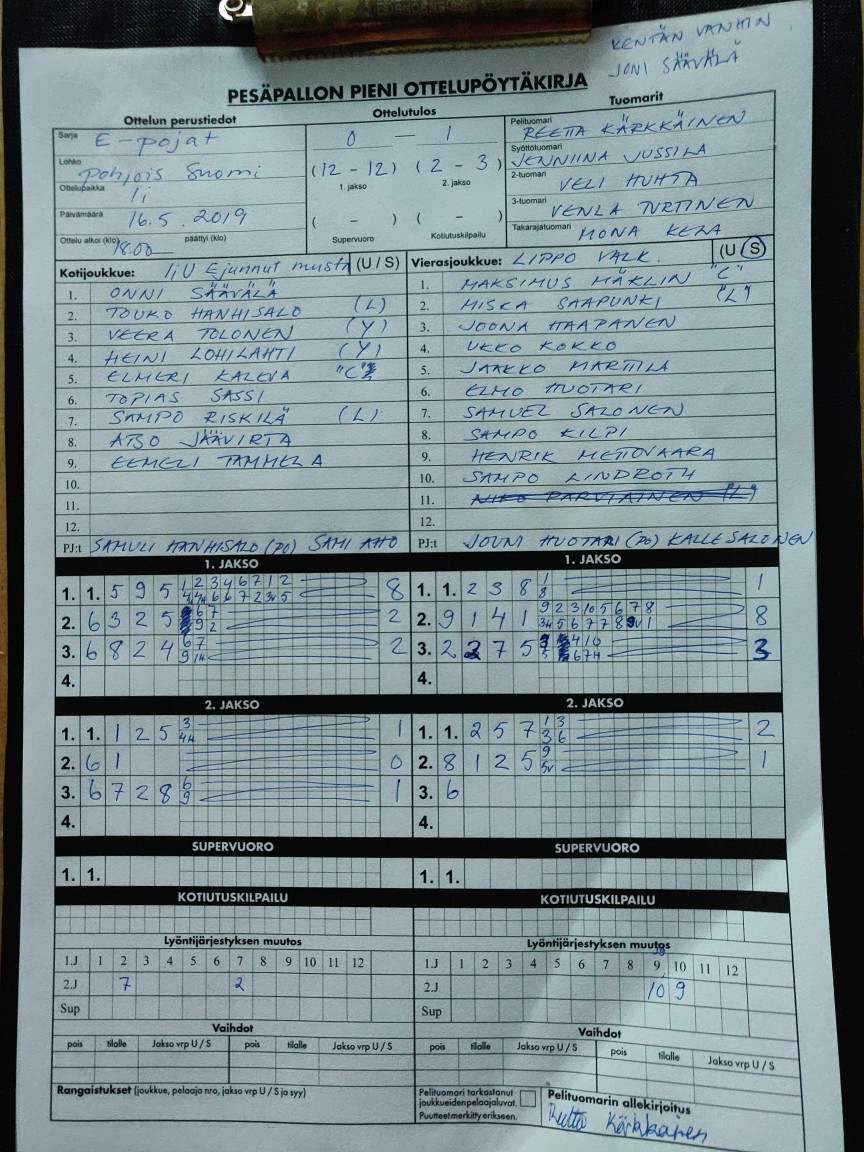 KENTÄN VANHIN
JONI SÄÄVÄLÄ
PESÄPALLON PIENI OTTELUPÖYTÄKIRJA
Ottelun perustiedot
Ottelutulos
Tuomarit
Sarja E-pojat
Lohko Pohjois Suomi
Ottelupaikka Ii
Päivämäärä 16.5.2019
Ottelu alkoi (klo) 18.00 päättyi (klo)
0 — 1
(12 - 12) (2 - 3)
1. jakso 2. jakso
( - ) ( - )
Supervuoro Kotiutuskilpailu
Pelituomari REETTA KÄRKKÄINEN
Syöttötuomari JENNIINA JUSSILA
2-tuomari VELI HUHTA
3-tuomari VENLA TURTINEN
Takarajatuomari MONA KERA
Kotijoukkue: IiU Ejunnut musta (U / S)
1. ONNI SÄÄVÄLÄ
2. TOUKO HANHISALO (L)
3. VEERA TOLONEN (Y)
4. HEINI LOHILAHTI (Y)
5. ELMERI KALEVA "C"
6. TOPIAS SASSI
7. SAMPO RISKILÄ (L)
8. ATSO JÄÄVIRTA
9. EEMELI TAMMELA
10.
11.
12.
PJ:t SAMULI HANHISALO (PO) SAMI AHO
Vierasjoukkue: LIPPO VALK. (U / S)
1. MAKSIMUS MÄKLIN "C"
2. MISKA SAAPUNKI "L"
3. JOONA HAAPANEN
4. UKKO KOKKO
5. JAAKKO MARTTILA
6. ELMO HUOTARI
7. SAMUEL SALONEN
8. SAMPO KILPI
9. HENRIK METTOVAARA
10. SAMPO LINDROTH
11. NIKO PARVIAINEN "L"
12.
PJ:t JOUNI HUOTARI (PO) KALLE SALONEN
1. JAKSO
1. 1. 5 9 5 1 2 3 4 6 7 1 2 8
2. 6 3 2 5 6 7 2
9 2
3. 6 8 2 4 6 7 2
4.
1. JAKSO
1. 1. 2 3 8 1 1
8
2. 9 1 4 1 9 2 3 10 5 6 7 8 8
3. 2 2 7 5 3
4.
2. JAKSO
1. 1. 1 2 5 3 1
2. 6 1 0
3. 6 7 2 8 6 1
9
4.
2. JAKSO
1. 1. 2 5 7 1 3 2
3 6
2. 8 1 2 5 9 1
3. 6
4.
SUPERVUORO
1. 1.
SUPERVUORO
1. 1.
KOTIUTUSKILPAILU
KOTIUTUSKILPAILU
Lyöntijärjestyksen muutos
1.J 1 2 3 4 5 6 7 8 9 10 11 12
2.J 7 2
Sup
Lyöntijärjestyksen muutos
1.J 1 2 3 4 5 6 7 8 9 10 11 12
2.J 10 9
Sup
Vaihdot
pois tilalle Jakso vrp U / S pois tilalle Jakso vrp U / S
Vaihdot
pois tilalle Jakso vrp U / S pois tilalle Jakso vrp U / S
Rangaistukset (joukkue, pelaaja nro, jakso vrp U / S ja syy)
Pelituomari tarkastanut
joukkueiden pelaajaluvat.
Puutteet merkitty erikseen.
Pelituomarin allekirjoitus
Reetta Kärkkäinen